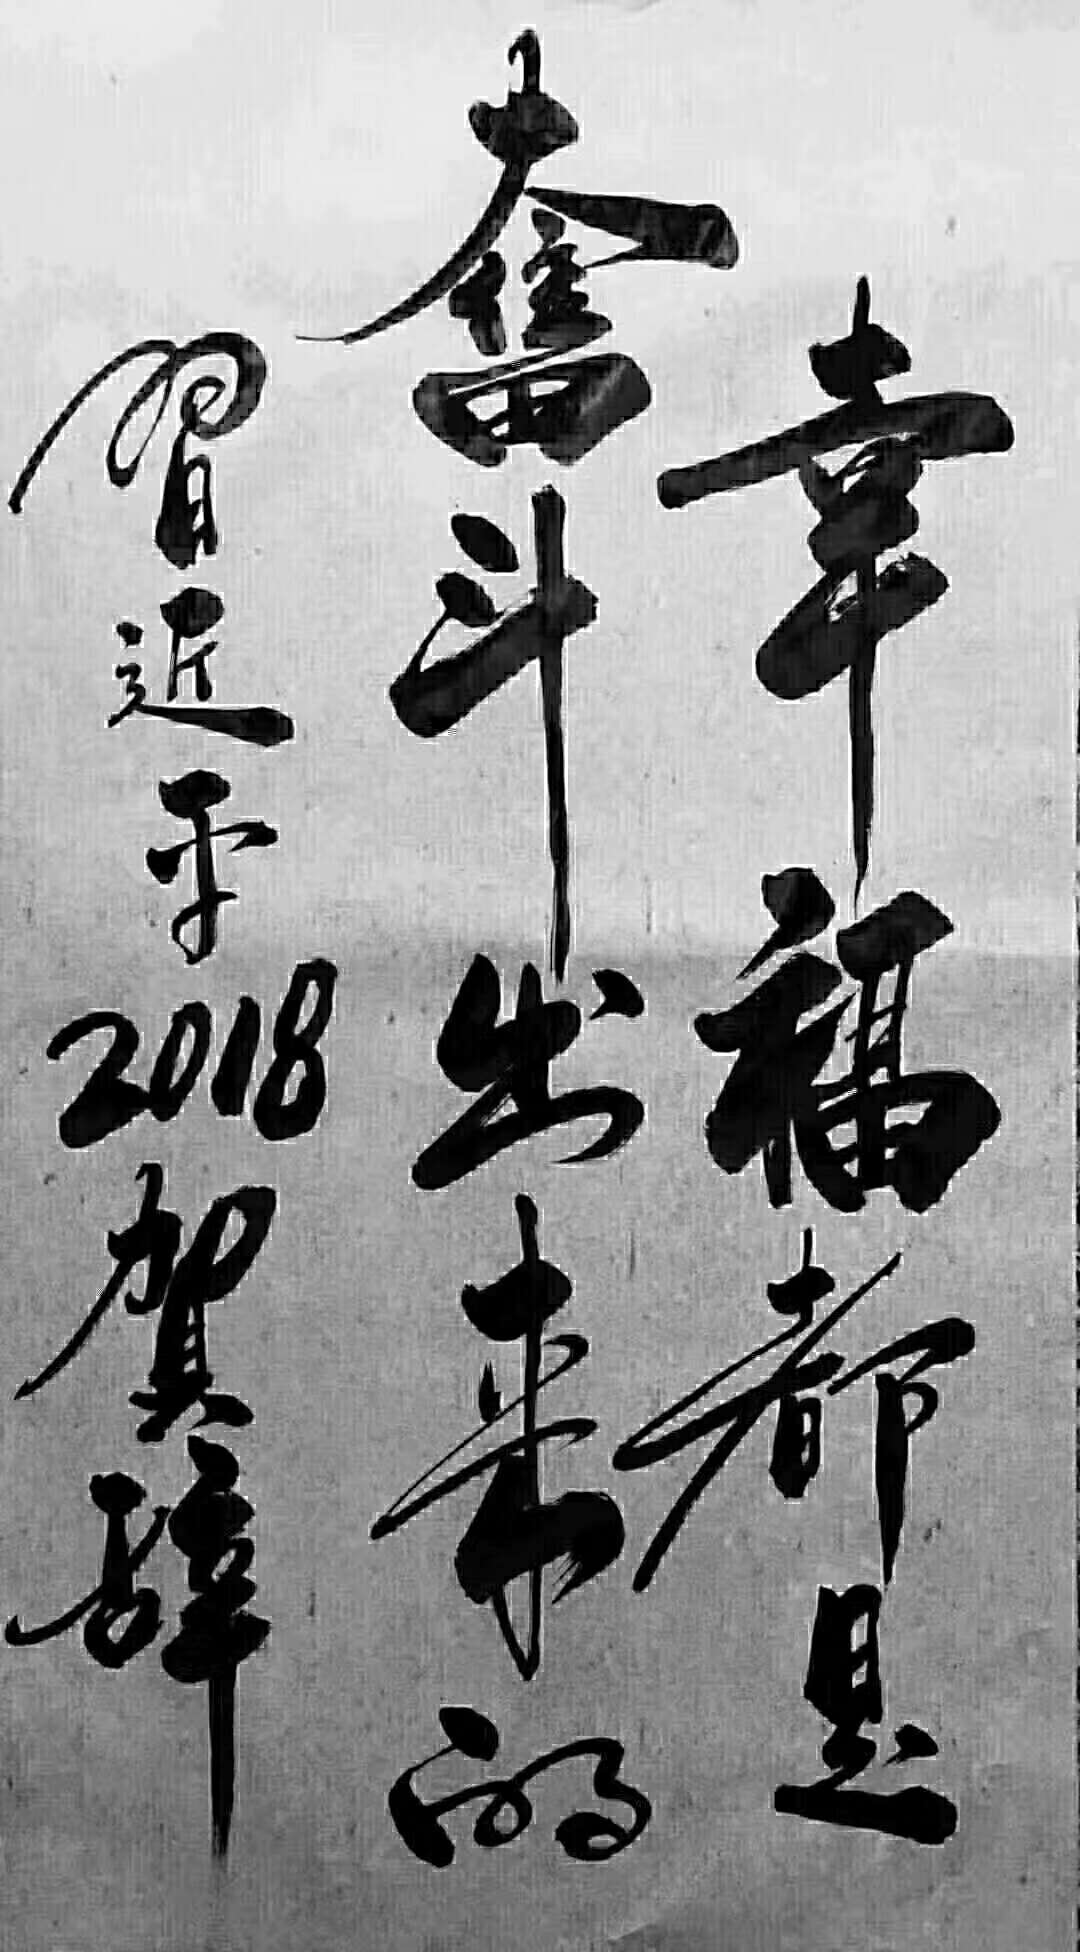 幸福都是
奮斗出来的
習近平2018賀辞